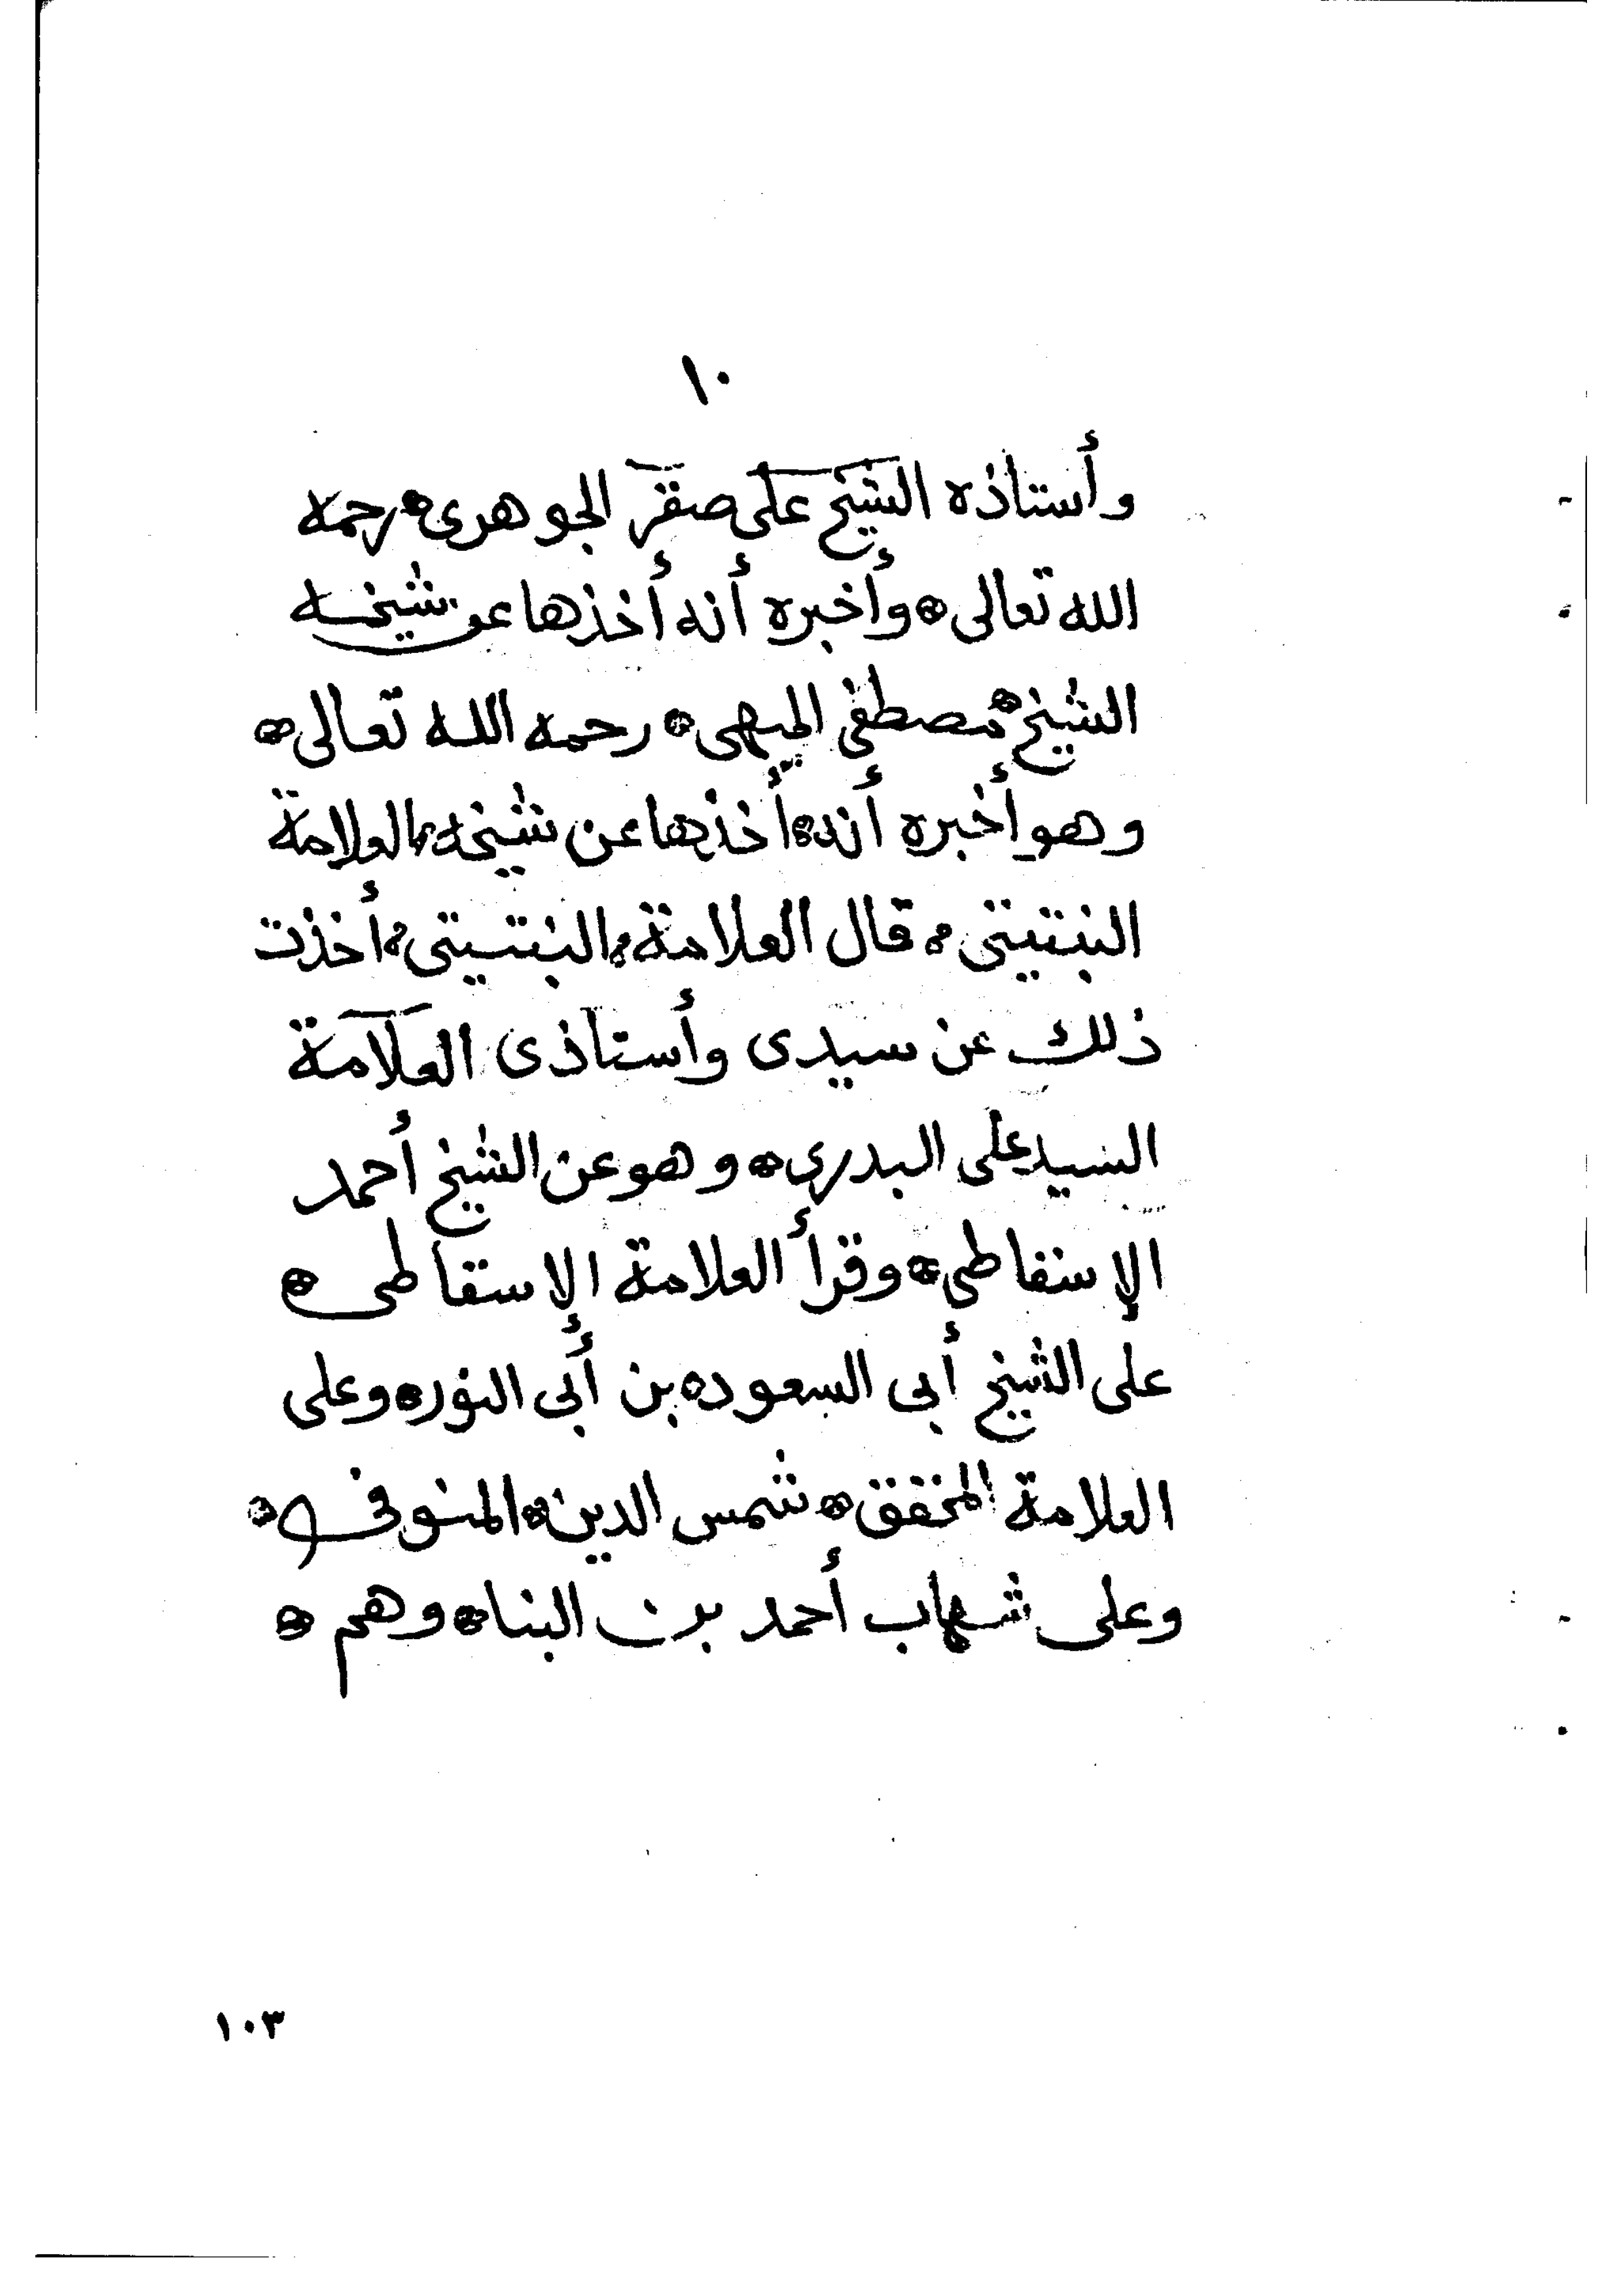 ١٠
وأستاذه الشيخ على صقر الجوهرى ۞ رحمه
الله تعالى ۞ وأخبره أنه أخذها عن شيخه
الشيخ ۞ مصطفى الميهى ۞ رحمه الله تعالى ۞
وهو أخبره أنه ۞ أخذها عن شيخه ۞ العلامة
النبتيتى ۞ قال العلامة ۞ النبتيتى ۞ أخذت
ذلك عن سيدى وأستاذى العلامة
السيد على البدرى ۞ وهو عن الشيخ أحمد
الإسقاطى ۞ وقرأ العلامة الإسقاطى ۞
على الشيخ أبى السعود ۞ بن أبى النور ۞ وعلى
العلامة المحقق ۞ شمس الدين ۞ المنوفى ۞
وعلى شهاب أحمد بن البنا ۞ وهم ۞
١٠٣